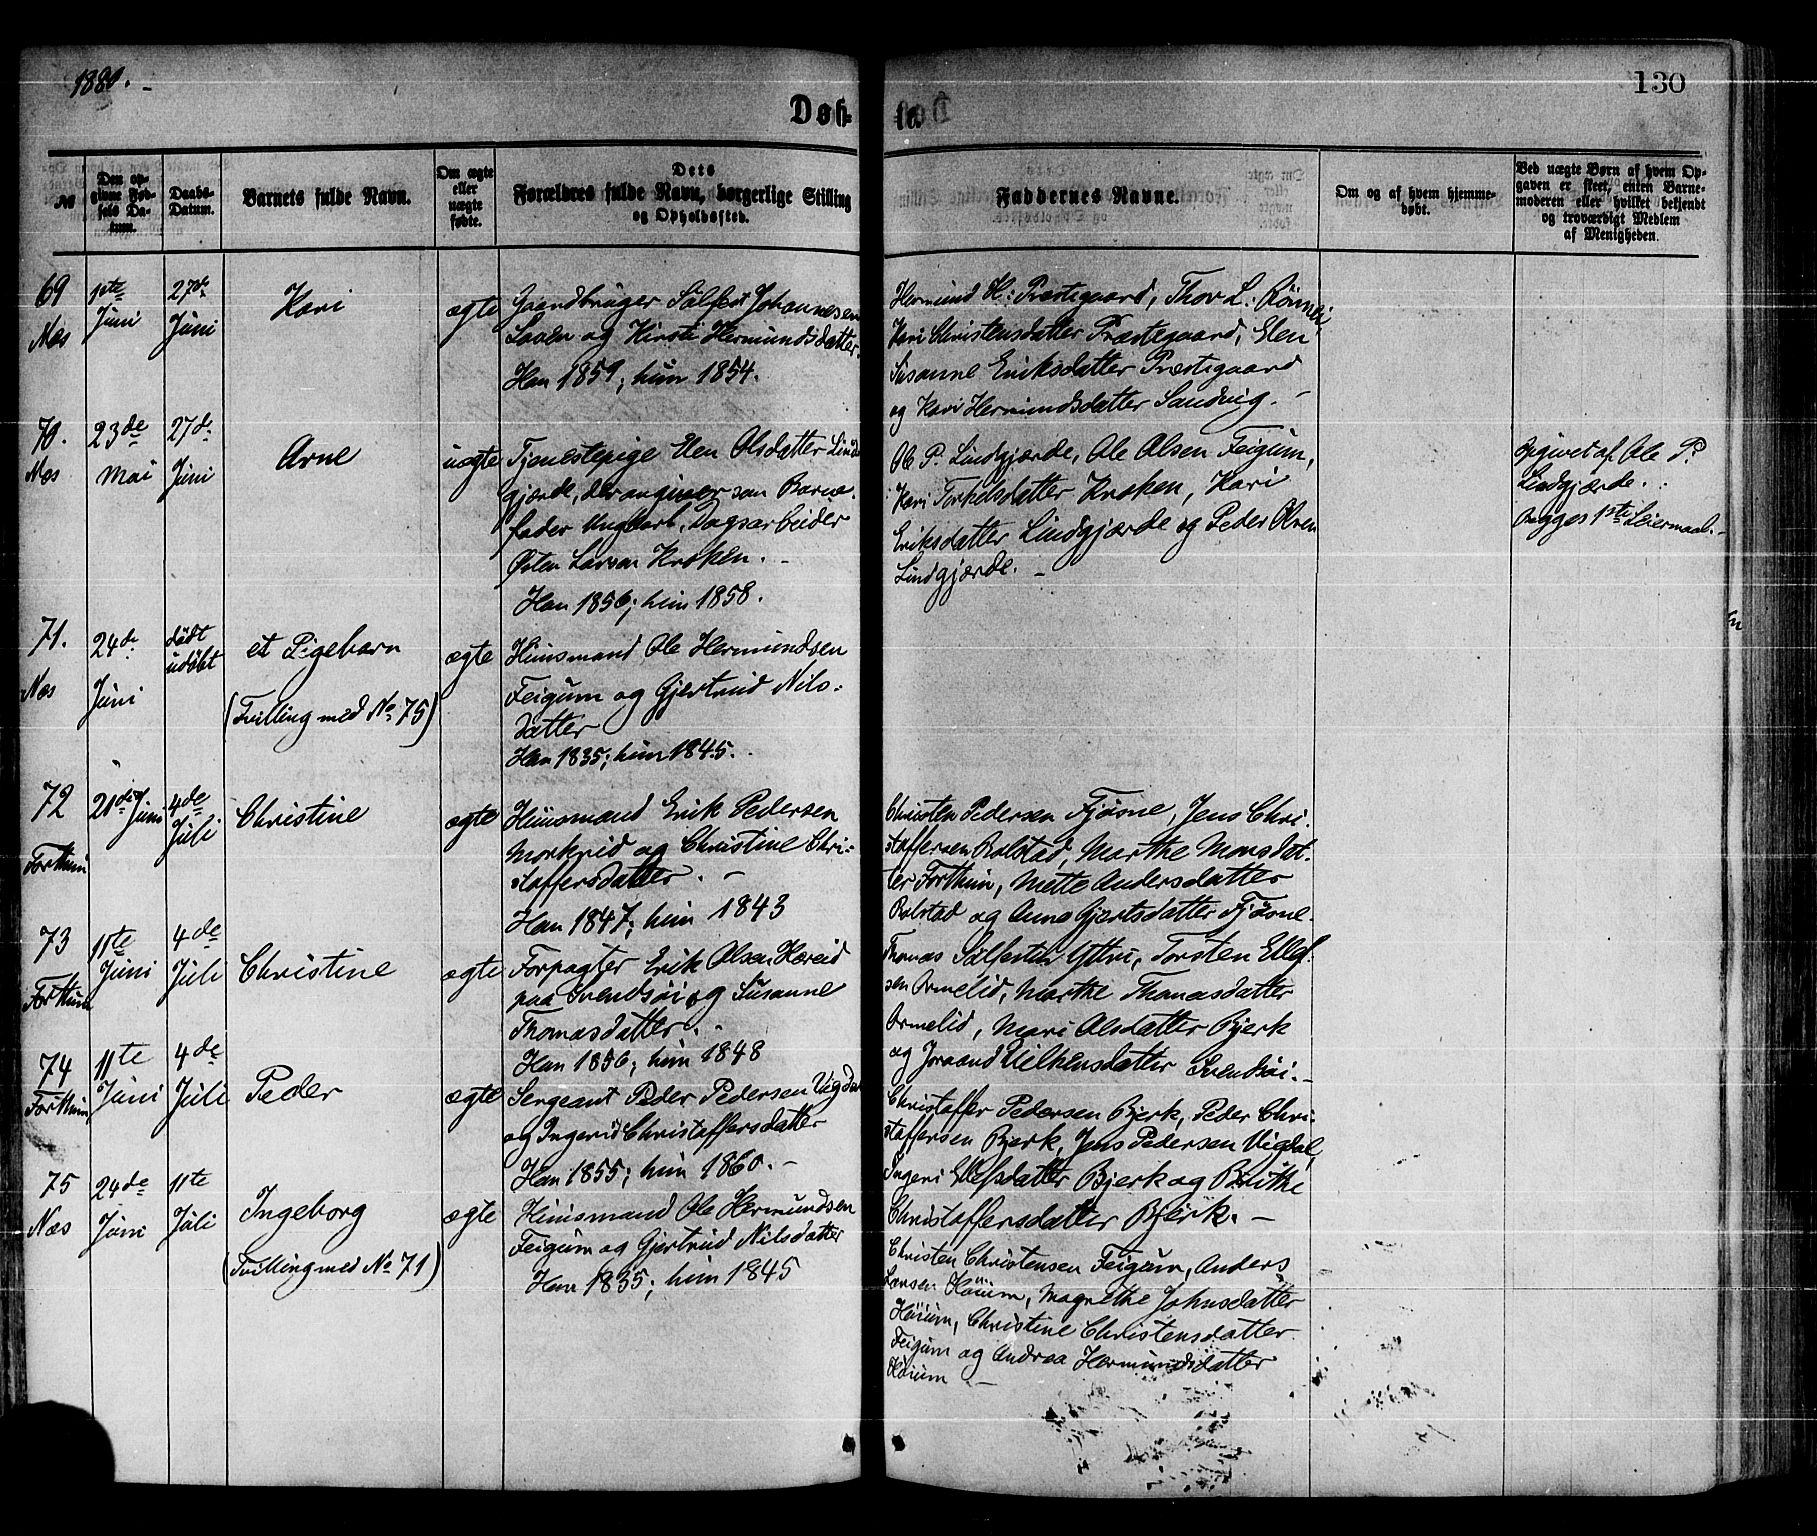 1880.
130
Døb-
te.
№
Den op-
givne Fød-
sels Da-
tum.
Daabs-
Datum.
Barnets fulde Navn.
Om ægte
eller
uægte
fødte.
Dets
Forældres fulde Navn, borgerlige Stilling
og Opholdssted.
Faddernes Navne.
Om og af hvem hjemme-
døbt.
Ved uægte Børn af hvem Op-
gaven er skeet, enten Barne-
moderen eller hvilket bekjendt
og troværdigt Medlem
af Menigheden.
69
Næs
1ste
Juni
27de
Juni
Kari
ægte
Gaardbruger Sølfest Johannesen
Løven og Kirsti Hermundsdatter
Han 1859; hun 1854.
Hermund H: Præstegaard, Thor L: Rönnei
Kari Christensdatter Præstegaard, Elen
Susanne Eriksdatter Præstegaard
og Kari Hermundsdatter Sandvig. -
70.
Næs
23de
Mai
27de
Juni
Arne
uægte
Tjenestepige Elen Olsdatter Lind
gjærde, der angiver som Barne-
fader Ungkarl, Dagsarbeider
Østen Larsen Kroken. -
Han 1856; hun 1858.
Ole P. Lindgjærde, Ole Olsen Feigum,
Kari Torkelsdatter Kroken, Kari
Eriksdatter Lindgjærde og Peder Olsen
Lindgjærde. -
Opgivet af Ole P.
Lindgjærde.
Begges 1ste Leiermaal. -
71.
Næs
24de
Juni
dødt
udøbt
et Pigebarn
(Tvilling med No 75)
ægte
Huusmand Ole Hermundsen
Feigum og Gjertrud Nils-
datter
Han 1835; hun 1845.
72
Forthun
21de Juni
4de
Juli
Christine
ægte
Huusmand Erik Pedersen
Morkrid og Christine Chri-
stoffersdatter. -
Han 1847; hun 1843
Christen Pedersen Fjøsne, Jens Chri-
stoffersen Bolstad, Marthe Monsdat-
ter Forthun, Mette Andersdatter
Bolstad og Anna Gjertsdatter Fjøsne.
73
Forthun
11te
Juni
4de
Juli
Christine
ægte
Forpagter Erik Olsen Høreid
paa Svendsøi og Susanne
Thomasdatter. -
Han 1856; hun 1848
Thomas Sølfesten Yttri, Torsten Ellef-
sen Ormelid, Marthe Thomasdatter
Ormelid, Mari Olsdatter Bjerk
og Joraand Vilhemsdatter Svendsøi. -
74
Forthun
11te
Juni
4de
Juli
Peder
ægte
Sergeant Peder Pedersen Vigdal
og Ingerid Christoffersdatter
Han 1855; hun 1860. -
Christoffer Pedersen Bjerk, Peder Chri-
stoffersen Bjerk, Jens Pedersen Vigdal,
Ingeri Ellefsdatter Bjerk og Brithe
Christoffersdatter Bjerk. -
75
Næs
24de
Juni
11te
Juli
Ingeborg
(Tvilling med No 71)
ægte
Huusmand Ole Hermundsen
Feigum og Gjertrud Nilsdatter
Han 1835; hun 1845
Christen Christensen Feigum, Anders
Larsen Høium, Magnethe Johnsdatter
Høium, Christine Christensdatter
Feigum og Andrea Hermundsdatter
Høium -